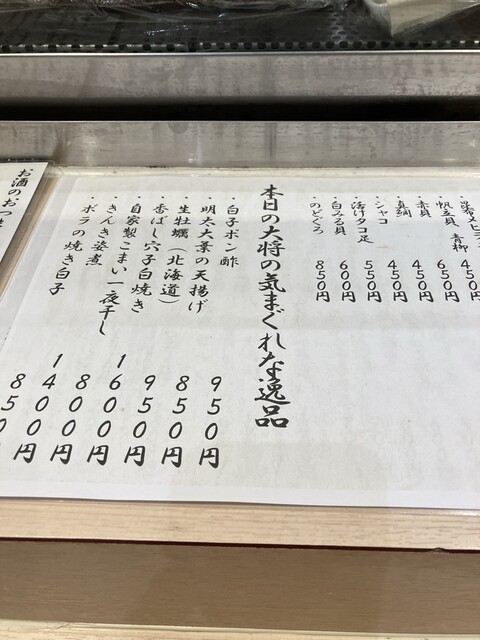 青柳
・帆立貝 450円
・赤貝 650円
・真鯛 450円
・シャコ 450円
・活けタコ足 550円
・白みる貝 600円
・のどぐろ 850円
本日の大将の気まぐれな逸品
・白子ポン酢 950円
・明太大葉の天揚げ 850円
・生牡蠣(北海道) 950円
・香ばし穴子白焼き 1600円
・自家製こまい一夜干し 800円
・きんき姿煮 1400円
・ボラの焼き白子 850円
・お酒のおつ